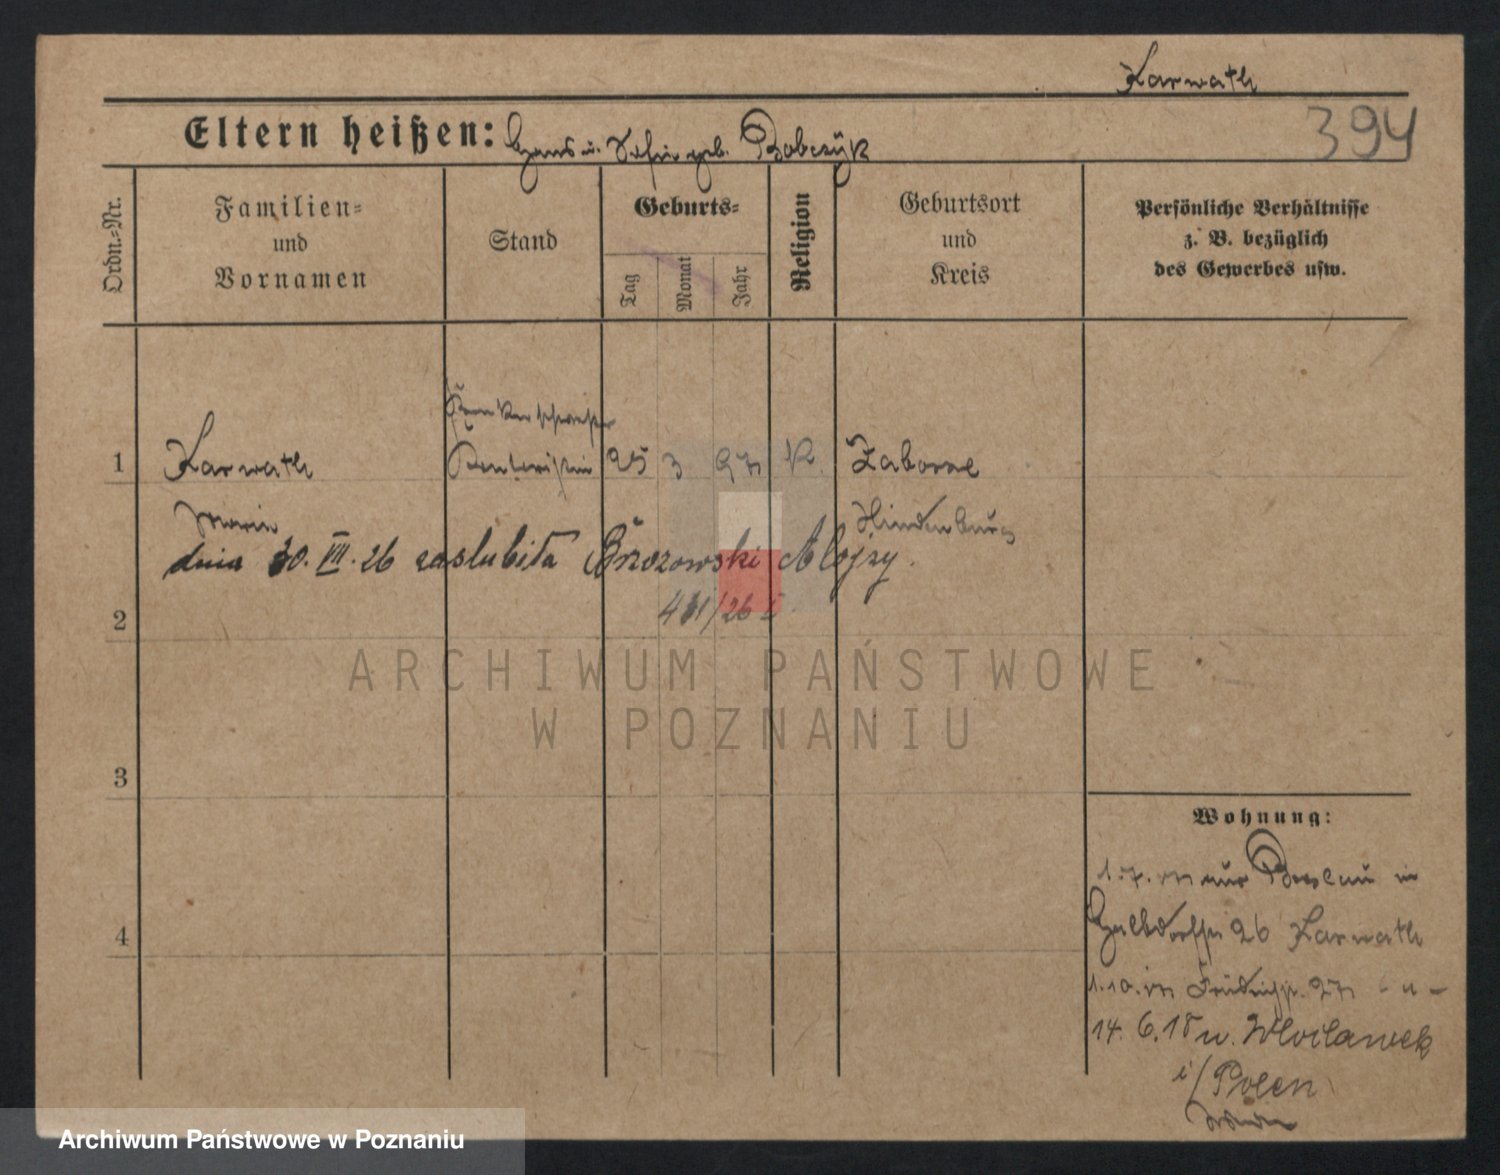 Karwath
394
Eltern heißen: Hans u. Sofie geb. Bobczÿk
Ordn.=Nr.
Familien=
und
Vornamen
Stand
Geburts=
Tag
Monat
Jahr
Religion
Geburtsort
und
Kreis
Persönliche Verhältnisse
z. B. bezüglich
des Gewerbes usw.
Krankenschwester
1 Karwath 25 3 97 K Zaborze
Maria Hindenburg
dnia 30. VII. 26 zaslubiła Brzozowski Alojzy.
2
ARCHIWUM PAŃSTWOWE
W POZNANIU
3
Wohnung:
1. 7. 17 aus Breslau in
26 Karwath
4
1. 10. 17 27 - u -
14. 6. 18 n. Wloclawek
i/ Polen
Archiwum Państwowe w Poznaniu